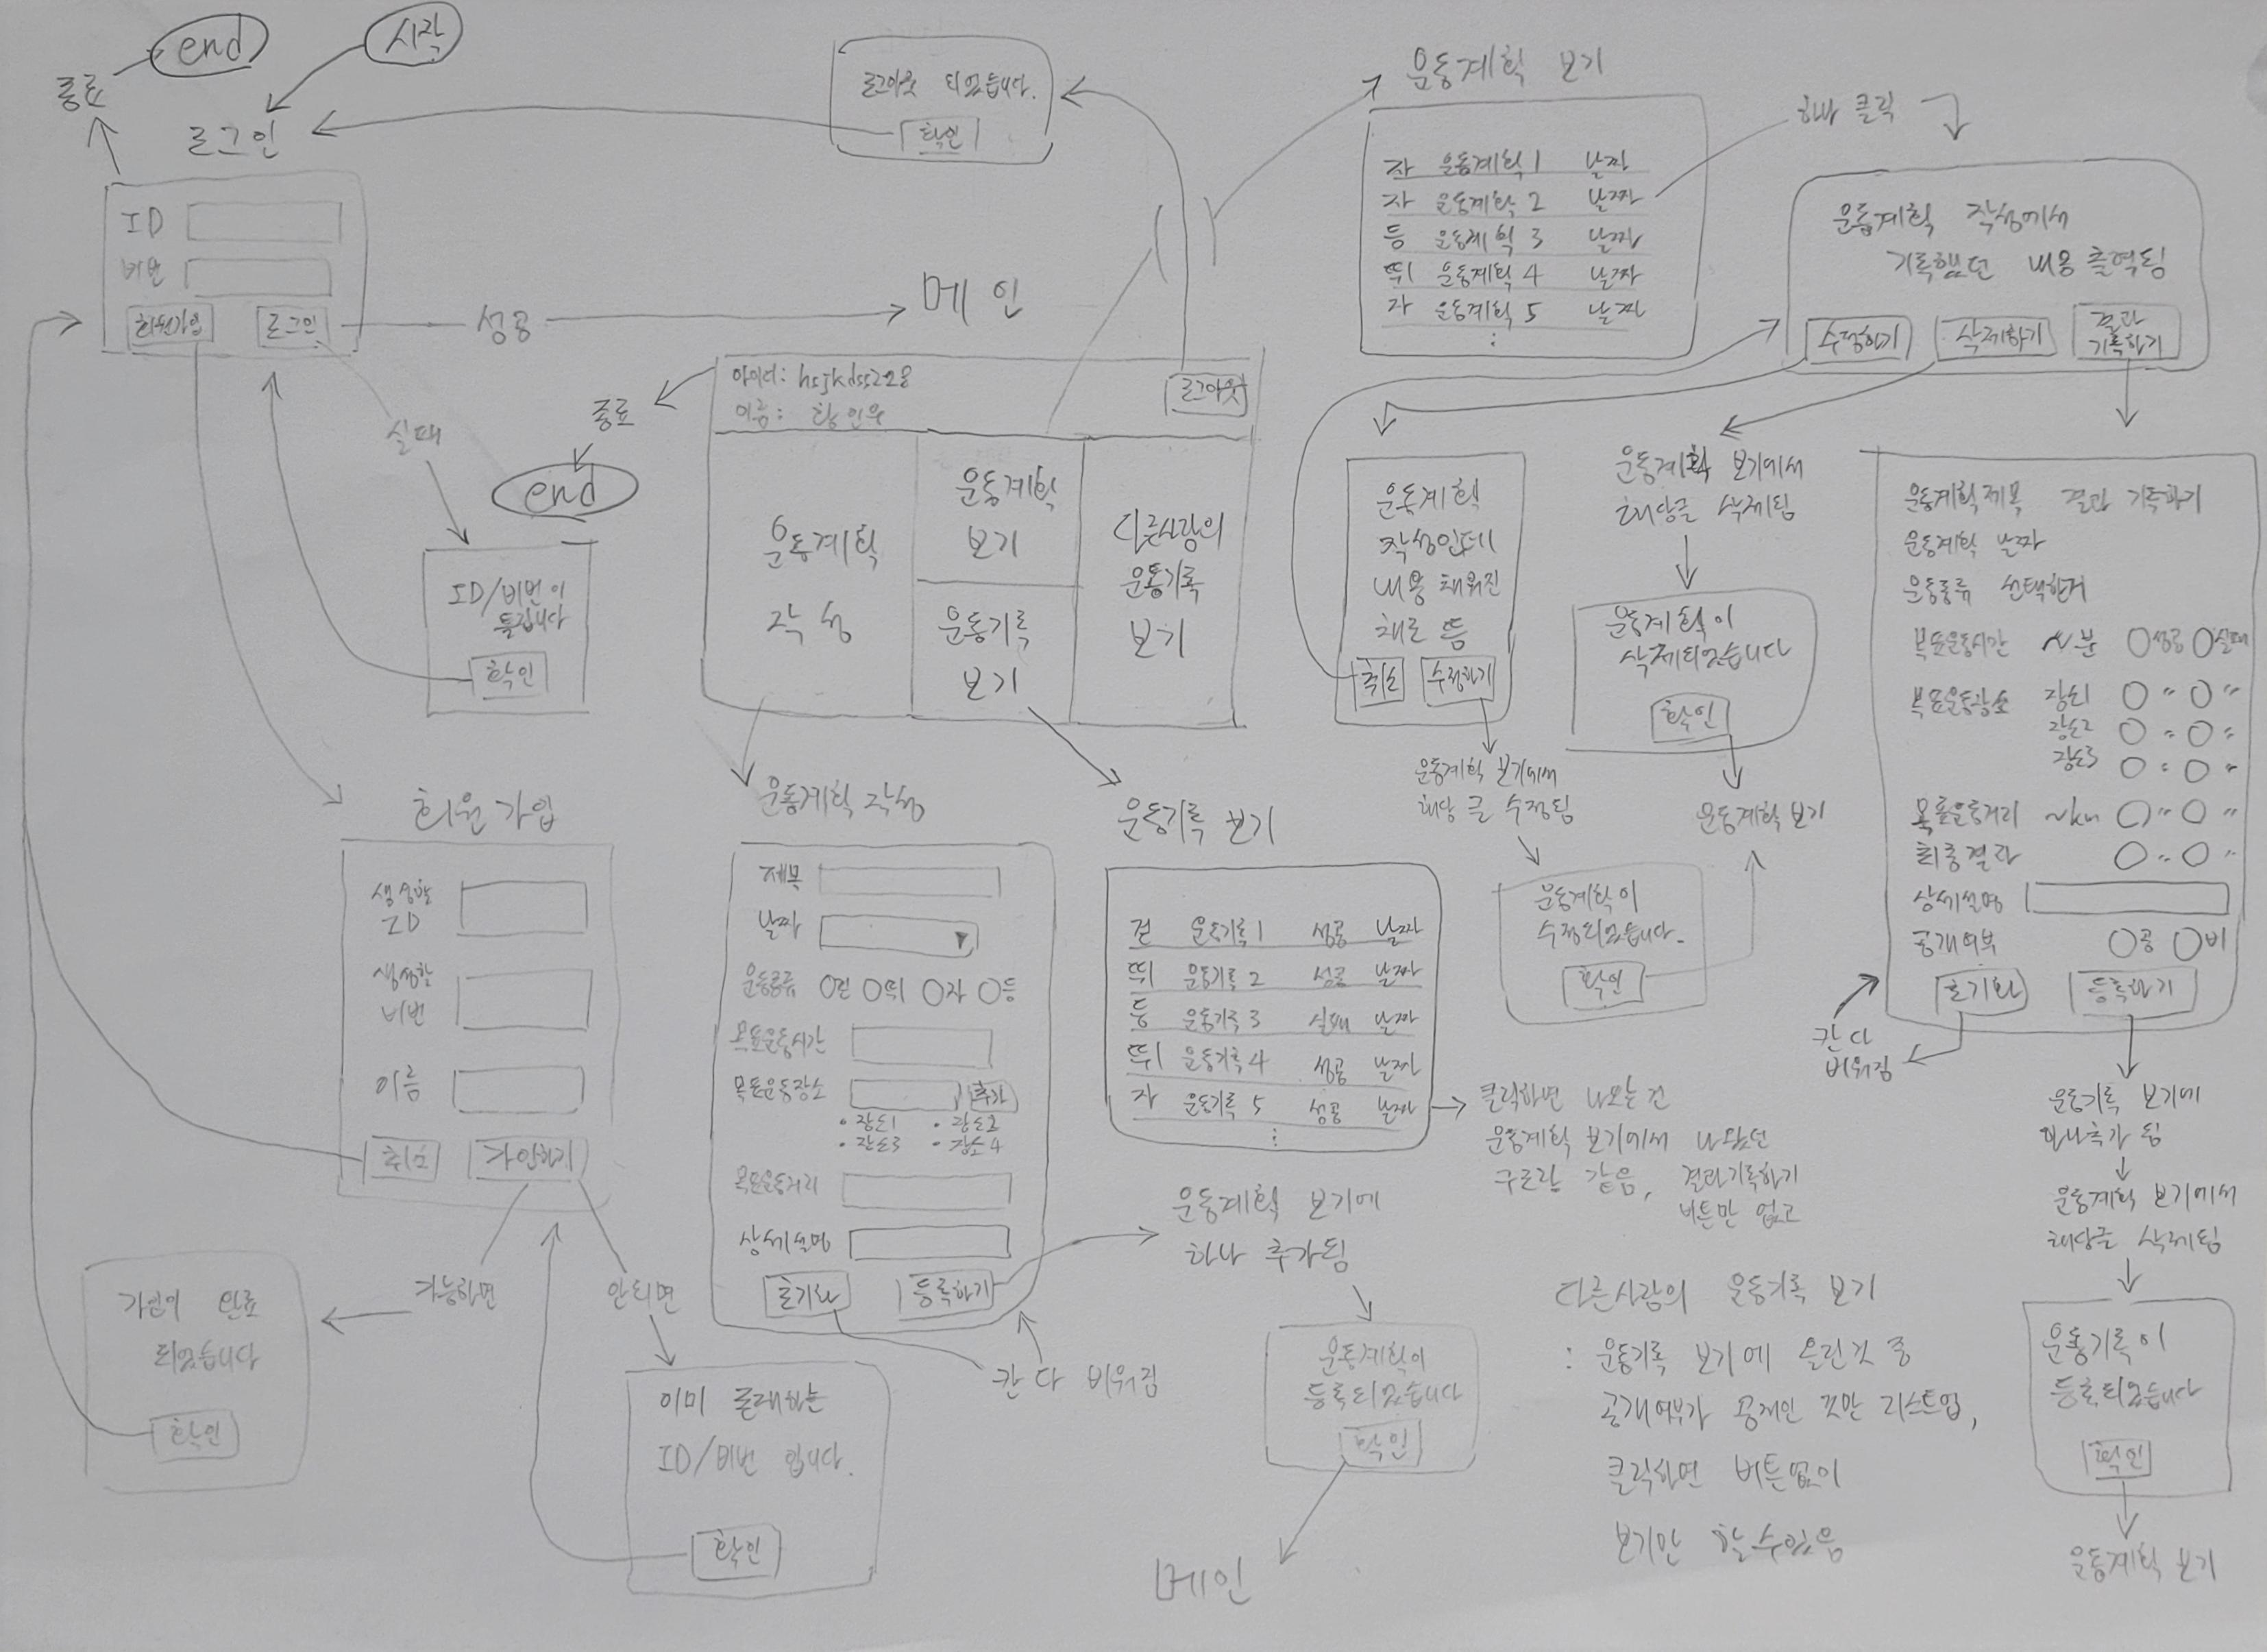 end
시작
종료
로그인
ID
비번
회원가입
로그인
성공
실패
ID/비번이
틀립니다
확인
로그아웃 되었습니다.
확인
메인
아이디: hsjkdss228
이름: 황인우
로그아웃
종료
end
운동계획
작성
운동계획
보기
운동기록
보기
다른사람의
운동기록
보기
운동계획 보기
자 운동계획 1 날짜
자 운동계획 2 날짜
등 운동계획 3 날짜
뛰 운동계획 4 날짜
자 운동계획 5 날짜
:
하나 클릭
운동계획 작성에서
기록했던 내용 출력됨
수정하기
삭제하기
결과
기록하기
운동계획
작성인데
내용 채워진
채로 뜸
취소
수정하기
운동계획 보기에서
해당 글 수정됨
운동계획이
수정되었습니다.
확인
운동계획 보기에서
해당글 삭제됨
운동계획이
삭제되었습니다
확인
운동계획 보기
운동계획제목 결과 기록하기
운동계획 날짜
운동종류 선택한거
목표운동시간 ~분 ○성공 ○실패
목표운동장소 장소1 ○ " ○ "
장소2 ○ " ○ "
장소3 ○ " ○ "
목표운동거리 ~km ○ " ○ "
최종결과 ○ " ○ "
상세설명
공개여부 ○공 ○비
초기화
등록하기
칸 다
비워짐
운동기록 보기에
하나추가 됨
운동계획 보기에서
해당글 삭제됨
운동기록이
등록되었습니다
확인
운동계획 보기
회원 가입
생성할
ID
생성할
비번
이름
취소
가입하기
가능하면
안되면
가입이 완료
되었습니다
확인
이미 존재하는
ID/비번 입니다.
확인
운동계획 작성
제목
날짜
운동종류 ○걷 ○뛰 ○자 ○등
목표운동시간
목표운동장소
추가
• 장소1 • 장소2
• 장소3 • 장소4
목표운동거리
상세설명
초기화
등록하기
칸 다 비워짐
운동계획 보기에
하나 추가됨
운동계획이
등록되었습니다
확인
메인
운동기록 보기
걷 운동기록 1 성공 날짜
뛰 운동기록 2 성공 날짜
등 운동기록 3 실패 날짜
뛰 운동기록 4 성공 날짜
자 운동기록 5 성공 날짜
:
클릭하면 나오는 건
운동계획 보기에서 나왔던
구조랑 같음, 결과기록하기
버튼만 없고
다른사람의 운동기록 보기
: 운동기록 보기에 올린것 중
공개여부가 공개인 것만 리스트업,
클릭하면 버튼없이
보기만 할 수 있음